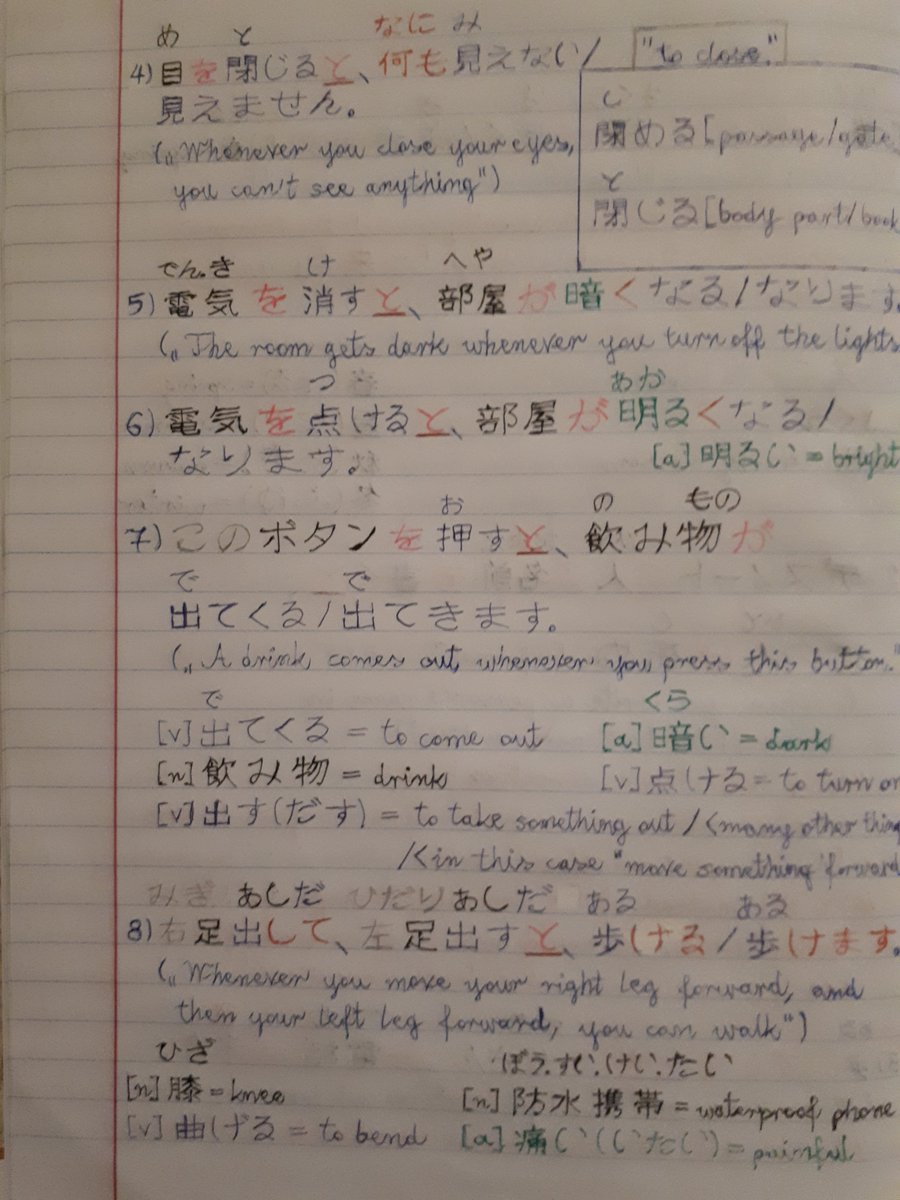 め と なに み
4) 目を閉じると、何も見えない/
見えません。
("Whenever you close your eyes,
you can't see anything")
"to close."
し
閉める[passage/gate
と
閉じる[body part/book
でんき け へや
5) 電気を消すと、部屋が暗くなる/なります。
("The room gets dark whenever you turn off the lights
つ あか
6) 電気を点けると、部屋が明るくなる/
なります。 [a]明るい = bright
お の もの
7) このボタンを押すと、飲み物が
で で
出てくる/出てきます。
("A drink comes out, whenever you press this button."
で くら
[v]出てくる = to come out [a]暗い = dark
[n]飲み物 = drink [v]点ける = to turn on
[v]出す(だす) = to take something out /<many other thing
/<in this case "move something forward
みぎ あしだ ひだり あしだ ある ある
8) 右足出して、左足出すと、歩ける/歩けます。
("Whenever you move your right leg forward, and
then your left leg forward, you can walk")
ひざ ぼう.すい.けい.たい
[n]膝 = knee [n]防水携帯 = waterproof phone
[v]曲げる = to bend [a]痛い(いたい) = painful